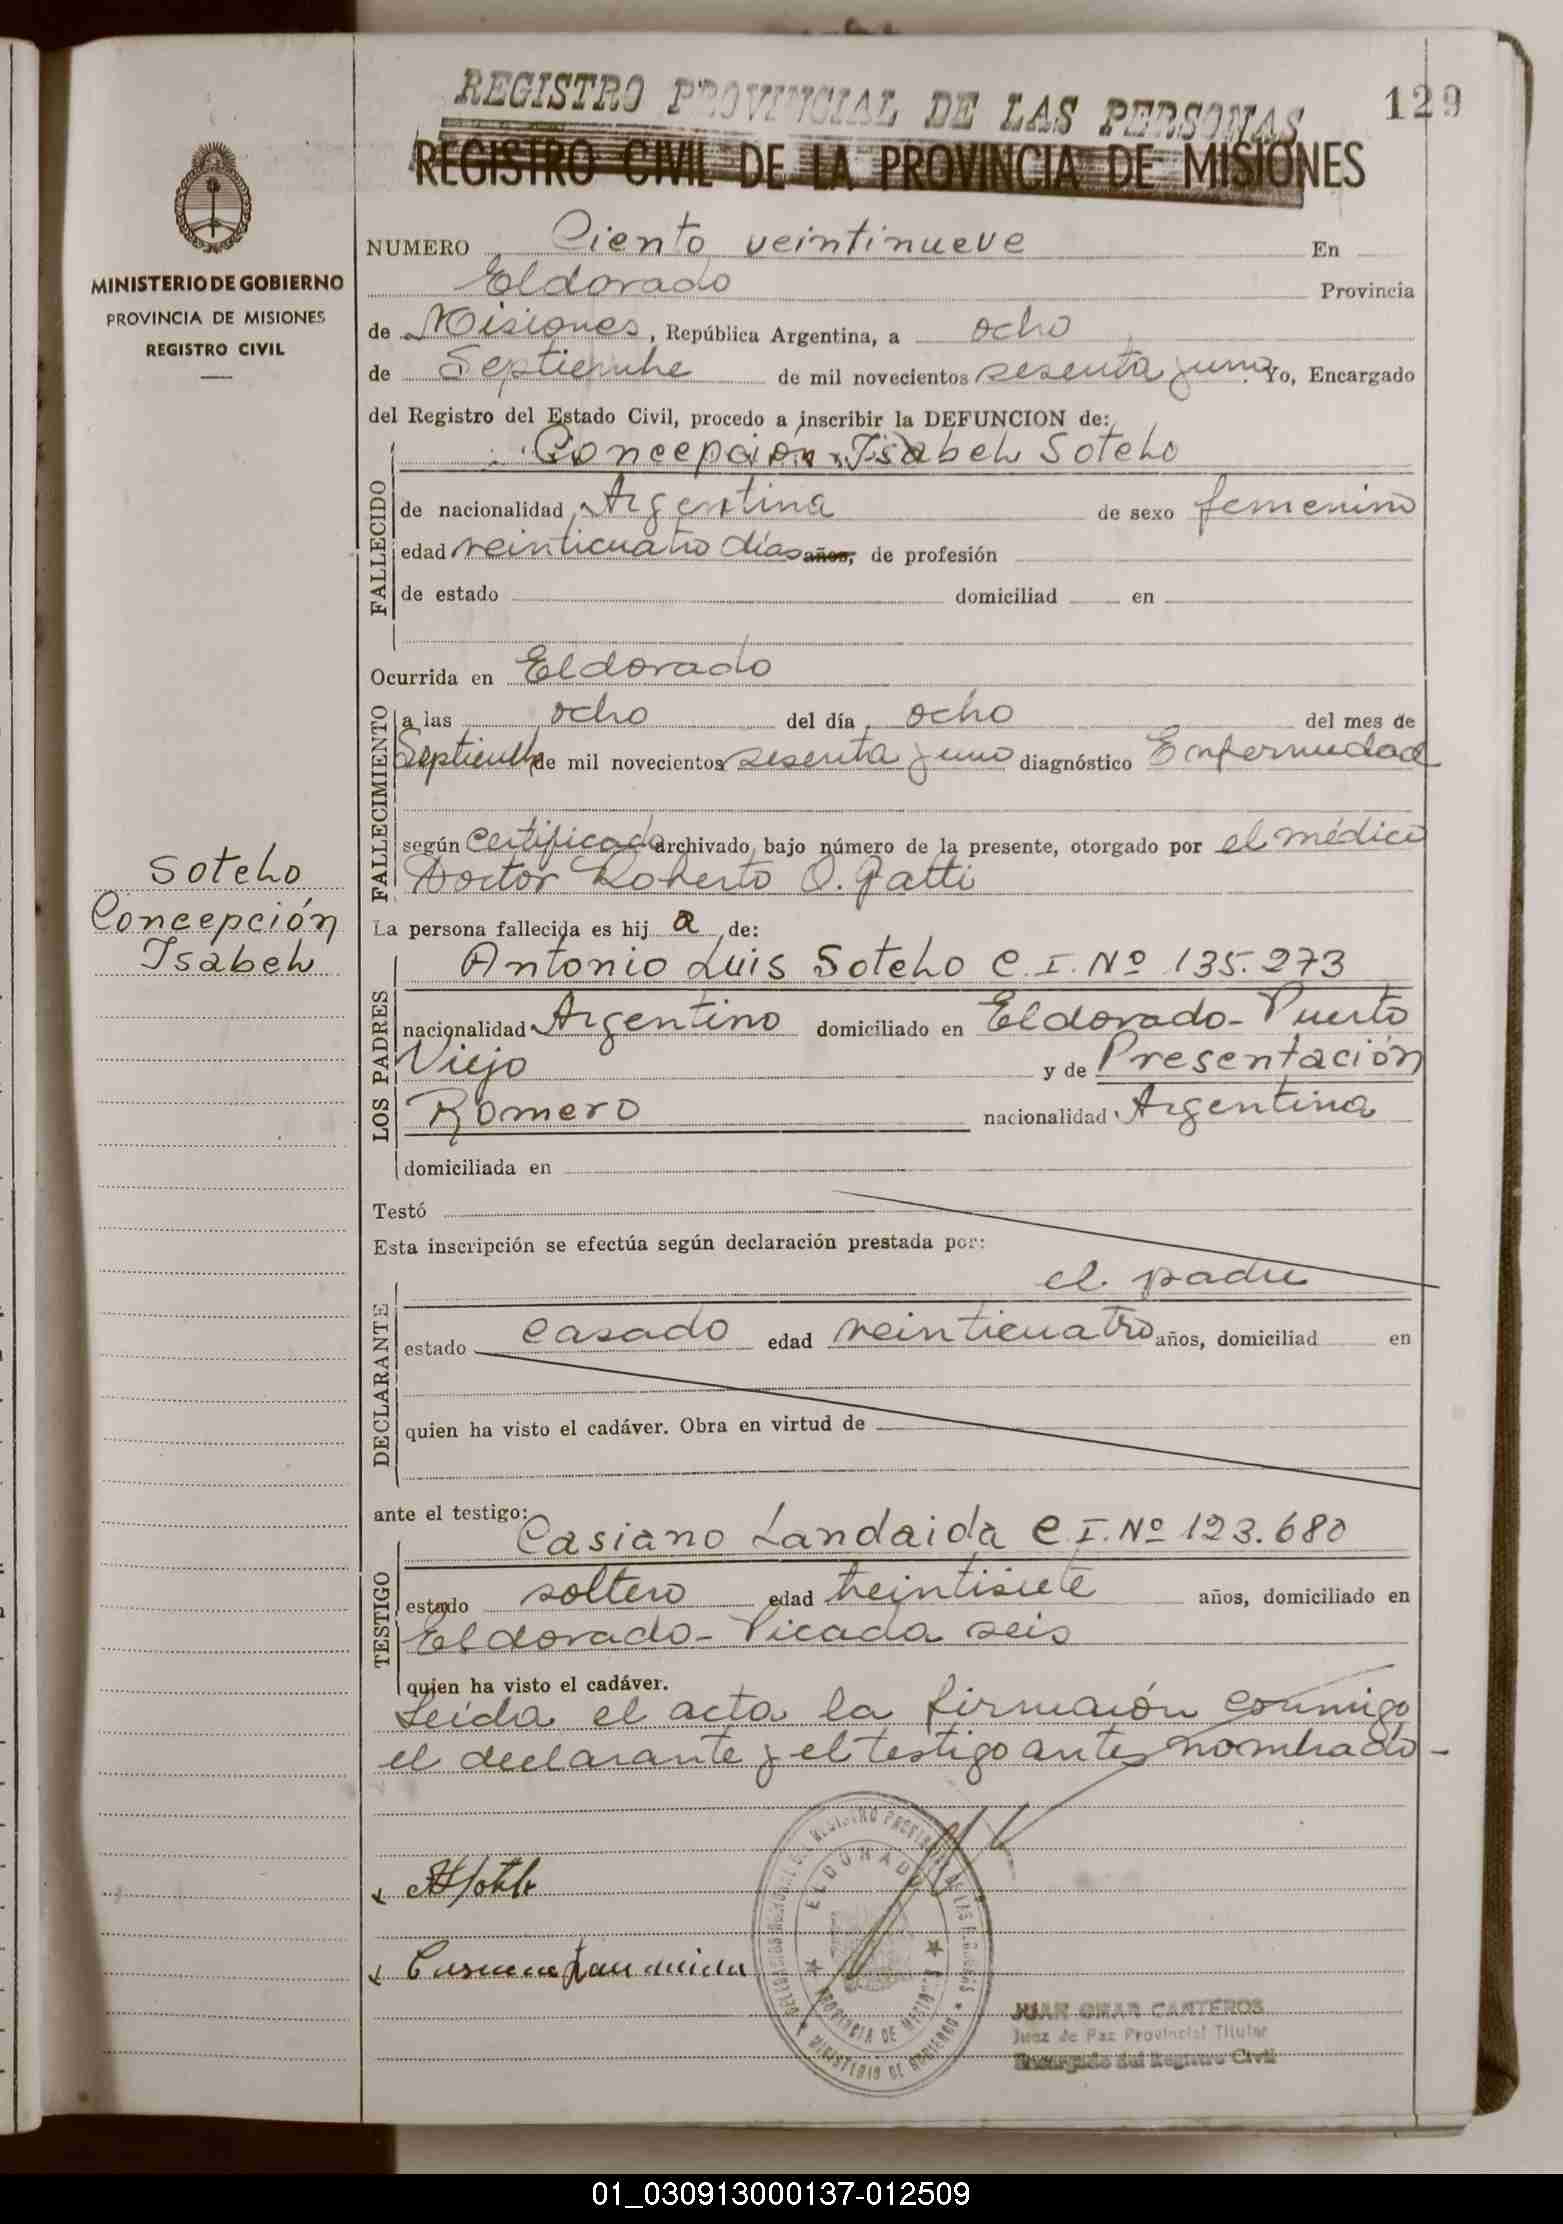 REGISTRO PROVINCIAL DE LAS PERSONAS
129
REGISTRO CIVIL DE LA PROVINCIA DE MISIONES
MINISTERIO DE GOBIERNO
PROVINCIA DE MISIONES
REGISTRO CIVIL
NUMERO Ciento veintinueve En
Eldorado Provincia
de Misiones, República Argentina, a ocho
de Septiembre de mil novecientos sesenta y uno. Yo, Encargado
del Registro del Estado Civil, procedo a inscribir la DEFUNCION de:
Concepción Isabel Sotelo
FALLECIDO
de nacionalidad Argentina de sexo femenino
edad veinticuatro días años, de profesión
de estado domiciliad en
Ocurrida en Eldorado
FALLECIMIENTO
a las ocho del día ocho del mes de
Septiembre de mil novecientos sesenta y uno diagnóstico Enfermedad
según certificado archivado bajo número de la presente, otorgado por el médico
Doctor Roberto O. Gatti
Sotelo
Concepción
Isabel
La persona fallecida es hij a de:
LOS PADRES
Antonio Luis Sotelo C.I. Nº 135.273
nacionalidad Argentino domiciliado en Eldorado - Puerto
Viejo y de Presentación
Romero nacionalidad Argentina
domiciliada en
Testó
Esta inscripción se efectúa según declaración prestada por:
el padre
DECLARANTE
estado casado edad veinticuatro años, domiciliad en
quien ha visto el cadáver. Obra en virtud de
ante el testigo:
Casiano Landaida C.I. Nº 123.680
TESTIGO
estado soltero edad treintisiete años, domiciliado en
Eldorado - Picada seis
quien ha visto el cadáver.
Leída el acta la firmarón conmigo
el declarante y el testigo antes nombrado -
ELDORADO
PROVINCIA DE MISIONES
MINISTERIO DE GOBIERNO
JUAN OMAR CANTEROS
Juez de Paz Provincial Titular
Encargado del Registro Civil
01_030913000137-012509